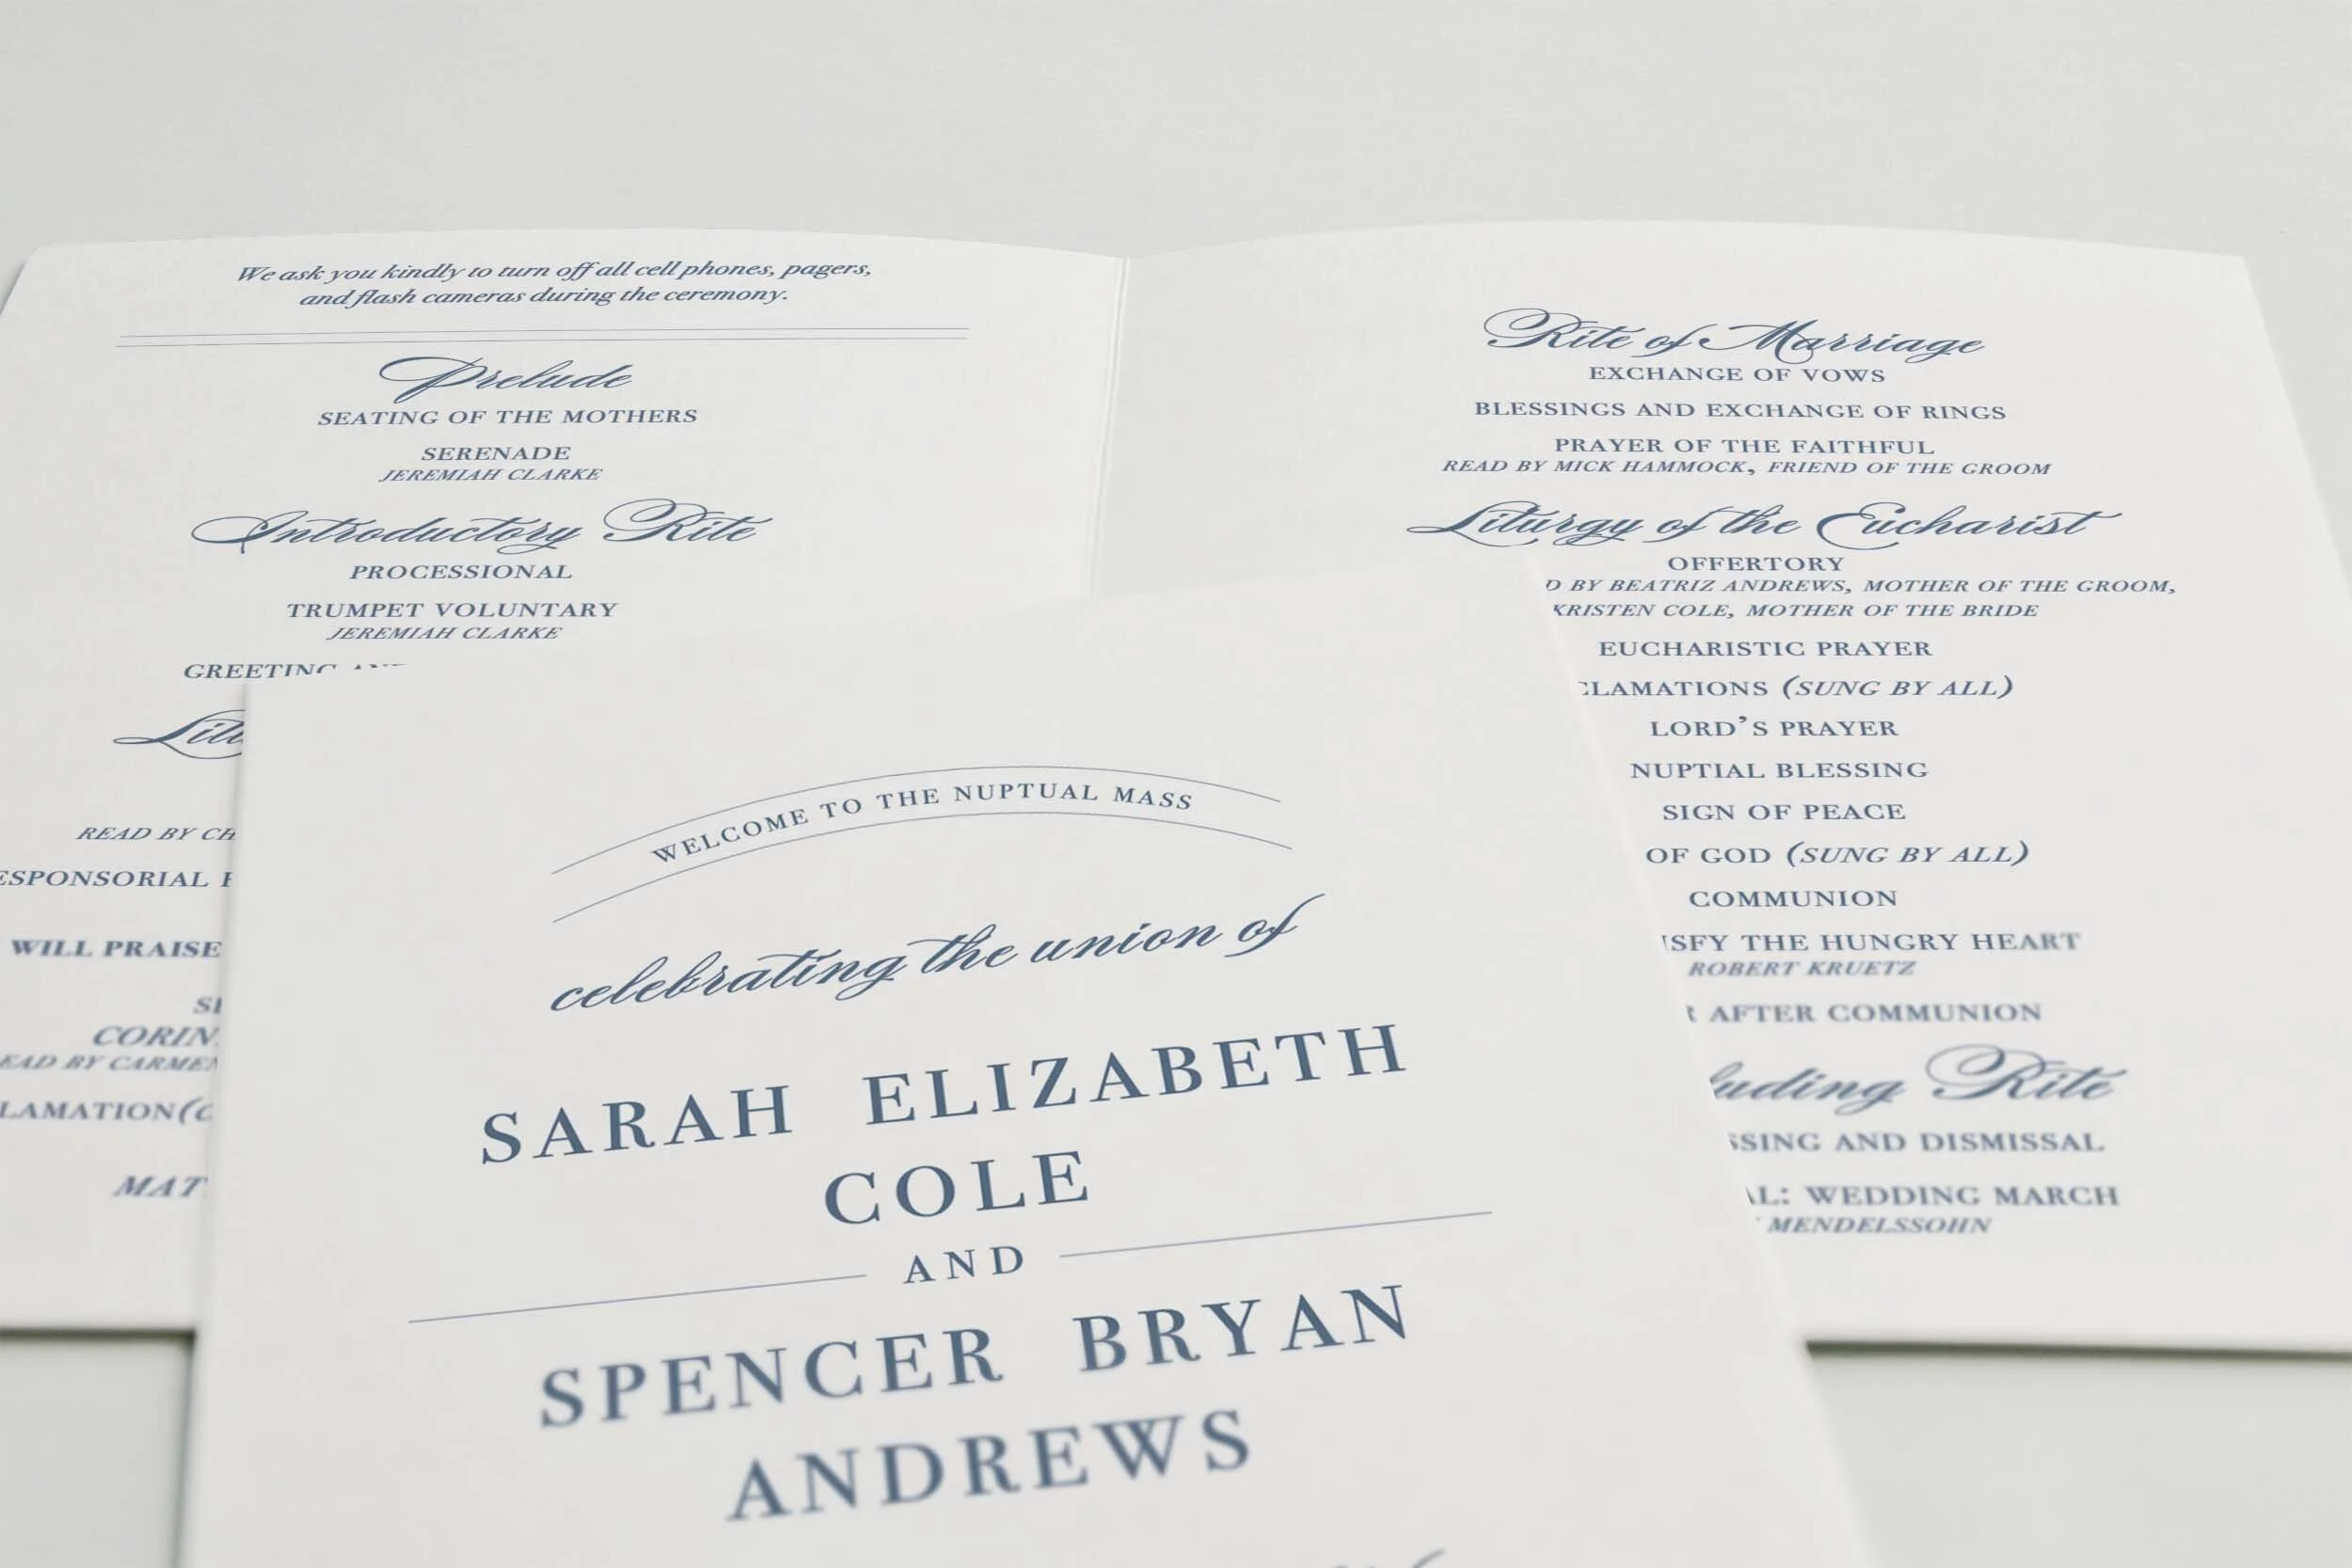 We ask you kindly to turn off all cell phones, pagers,
and flash cameras during the ceremony.
Prelude
SEATING OF THE MOTHERS
SERENADE
JEREMIAH CLARKE
Introductory Rite
PROCESSIONAL
TRUMPET VOLUNTARY
JEREMIAH CLARKE
READ BY
WILL PRAISE
Rite of Marriage
EXCHANGE OF VOWS
BLESSINGS AND EXCHANGE OF RINGS
PRAYER OF THE FAITHFUL
READ BY MICK HAMMOCK, FRIEND OF THE GROOM
Liturgy of the Eucharist
OFFERTORY
BY BEATRIZ ANDREWS, MOTHER OF THE GROOM,
KRISTEN COLE, MOTHER OF THE BRIDE
EUCHARISTIC PRAYER
CLAMATIONS (SUNG BY ALL)
LORD'S PRAYER
NUPTIAL BLESSING
SIGN OF PEACE
OF GOD (SUNG BY ALL)
COMMUNION
SFY THE HUNGRY HEART
ROBERT KRUETZ
AFTER COMMUNION
uding Rite
SSING AND DISMISSAL
L: WEDDING MARCH
MENDELSSOHN
WELCOME TO THE NUPTUAL MASS
celebrating the union of
SARAH ELIZABETH
COLE
AND
SPENCER BRYAN
ANDREWS